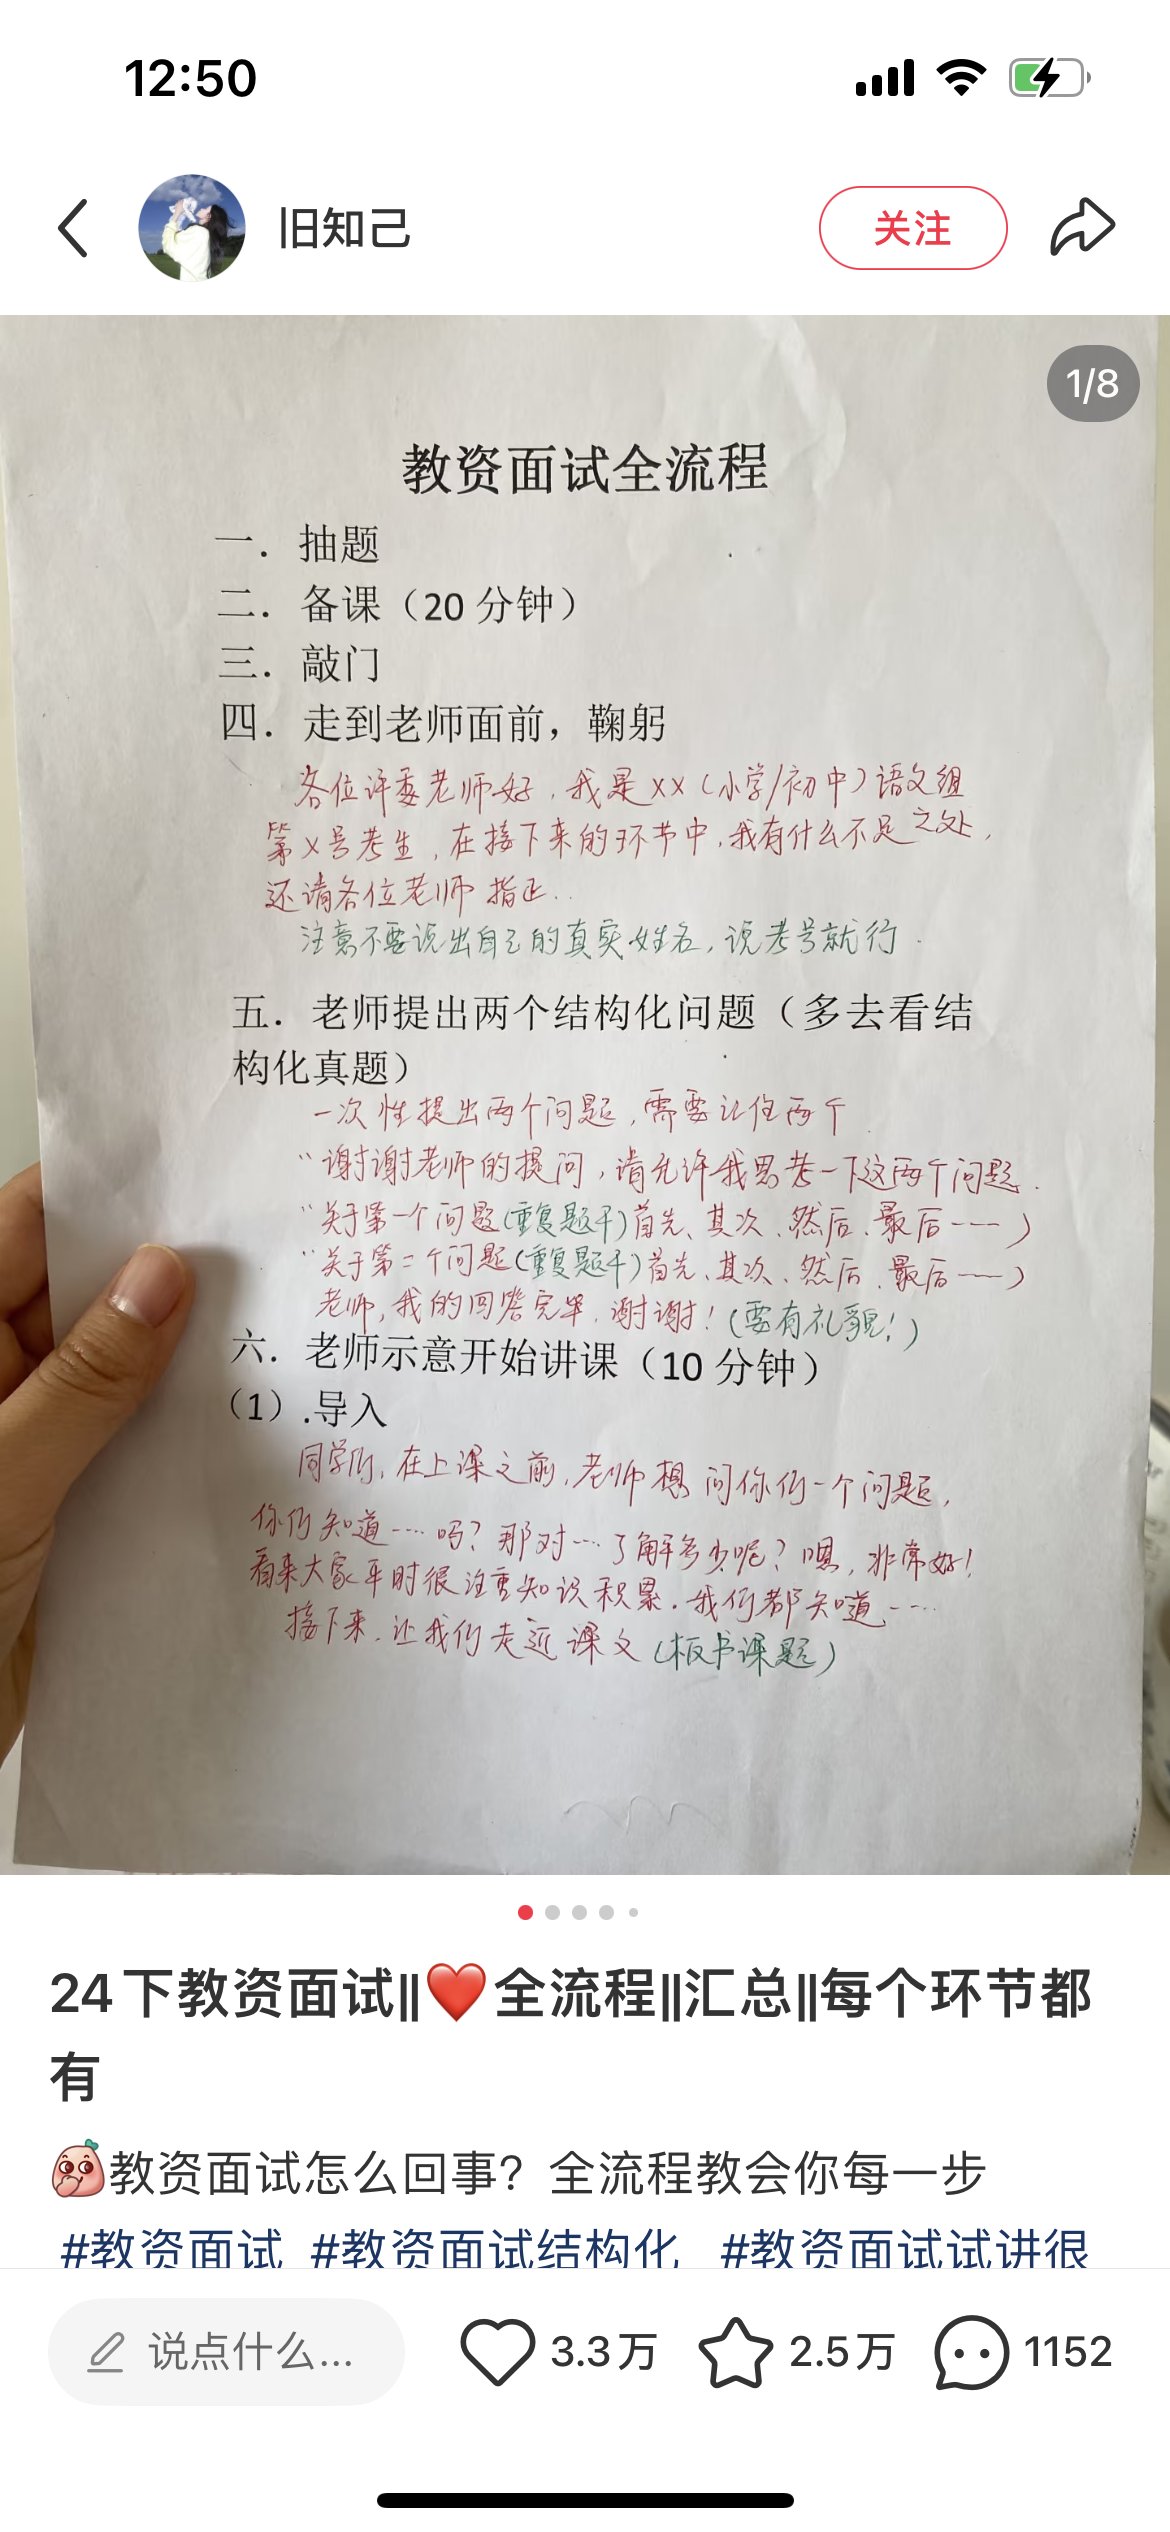 12:50
旧知己
关注
1/8
教资面试全流程
一. 抽题
二. 备课（20 分钟）
三. 敲门
四. 走到老师面前，鞠躬
各位评委老师好，我是××（小学/初中）语文组
第×号考生，在接下来的环节中，我有什么不足之处，
还请各位老师指正..
注意不要说出自己的真实姓名，说考号就行.
五. 老师提出两个结构化问题（多去看结
构化真题）
一次性提出两个问题，需要记住两个
“谢谢老师的提问，请允许我思考一下这两个问题.
“关于第一个问题(重复题干)首先、其次、然后、最后……）
“关于第二个问题(重复题干)首先、其次、然后、最后……）
老师，我的回答完毕，谢谢！(要有礼貌！)
六. 老师示意开始讲课（10 分钟）
（1）.导入
同学们，在上课之前，老师想问你们一个问题，
你们知道……吗？那对……了解多少呢？嗯，非常好！
看来大家平时很注重知识积累. 我们都知道……
接下来，让我们走近课文(板书课题)
24下教资面试||❤️全流程||汇总||每个环节都
有
教资面试怎么回事？全流程教会你每一步
#教资面试 #教资面试结构化 #教资面试试讲很
说点什么...
3.3万
2.5万
1152